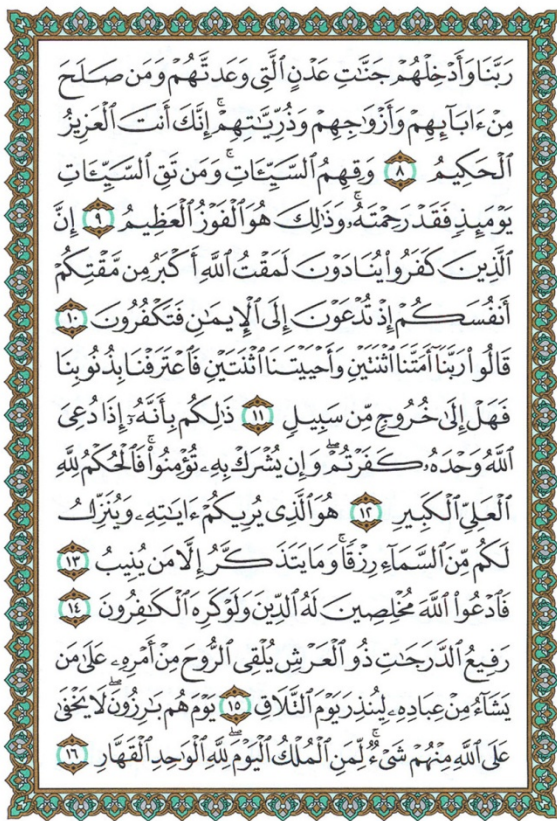 رَبَّنَا وَأَدْخِلْهُمْ جَنَّٰتِ عَدْنٍ ٱلَّتِى وَعَدتَّهُمْ وَمَن صَلَحَ
مِنْ ءَابَآئِهِمْ وَأَزْوَٰجِهِمْ وَذُرِّيَّٰتِهِمْ ۚ إِنَّكَ أَنتَ ٱلْعَزِيزُ
ٱلْحَكِيمُ ٨ وَقِهِمُ ٱلسَّيِّـَٔاتِ ۚ وَمَن تَقِ ٱلسَّيِّـَٔاتِ
يَوْمَئِذٍ فَقَدْ رَحِمْتَهُۥ ۚ وَذَٰلِكَ هُوَ ٱلْفَوْزُ ٱلْعَظِيمُ ٩ إِنَّ
ٱلَّذِينَ كَفَرُوا۟ يُنَادَوْنَ لَمَقْتُ ٱللَّهِ أَكْبَرُ مِن مَّقْتِكُمْ
أَنفُسَكُمْ إِذْ تُدْعَوْنَ إِلَى ٱلْإِيمَٰنِ فَتَكْفُرُونَ ١٠
قَالُوا۟ رَبَّنَآ أَمَتَّنَا ٱثْنَتَيْنِ وَأَحْيَيْتَنَا ٱثْنَتَيْنِ فَٱعْتَرَفْنَا بِذُنُوبِنَا
فَهَلْ إِلَىٰ خُرُوجٍ مِّن سَبِيلٍ ١١ ذَٰلِكُم بِأَنَّهُۥٓ إِذَا دُعِىَ
ٱللَّهُ وَحْدَهُۥ كَفَرْتُمْ ۖ وَإِن يُشْرَكْ بِهِۦ تُؤْمِنُوا۟ ۚ فَٱلْحُكْمُ لِلَّهِ
ٱلْعَلِىِّ ٱلْكَبِيرِ ١٢ هُوَ ٱلَّذِى يُرِيكُمْ ءَايَٰتِهِۦ وَيُنَزِّلُ
لَكُم مِّنَ ٱلسَّمَآءِ رِزْقًا ۚ وَمَا يَتَذَكَّرُ إِلَّا مَن يُنِيبُ ١٣
فَٱدْعُوا۟ ٱللَّهَ مُخْلِصِينَ لَهُ ٱلدِّينَ وَلَوْ كَرِهَ ٱلْكَٰفِرُونَ ١٤
رَفِيعُ ٱلدَّرَجَٰتِ ذُو ٱلْعَرْشِ يُلْقِى ٱلرُّوحَ مِنْ أَمْرِهِۦ عَلَىٰ مَن
يَشَآءُ مِنْ عِبَادِهِۦ لِيُنذِرَ يَوْمَ ٱلتَّلَاقِ ١٥ يَوْمَ هُم بَٰرِزُونَ ۖ لَا يَخْفَىٰ
عَلَى ٱللَّهِ مِنْهُمْ شَىْءٌ ۚ لِّمَنِ ٱلْمُلْكُ ٱلْيَوْمَ ۖ لِلَّهِ ٱلْوَٰحِدِ ٱلْقَهَّارِ ١٦